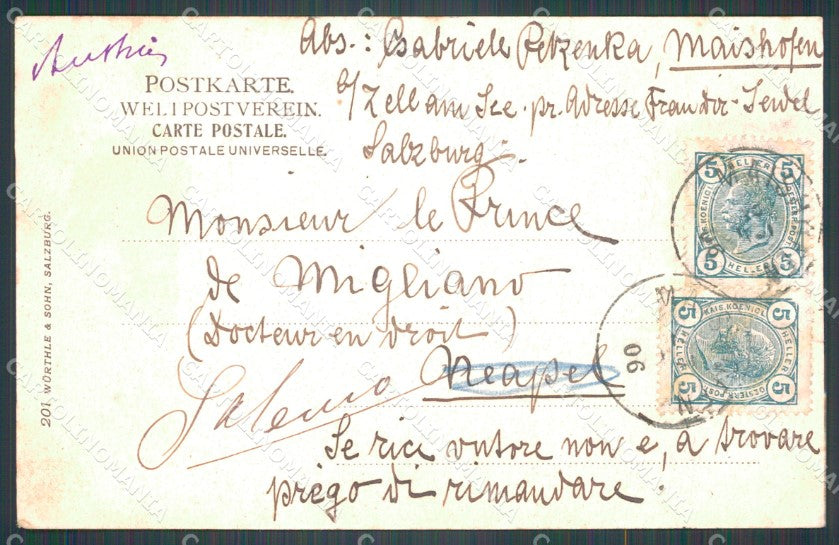 Austria
Abs.: Gabriele Petzenka, Maishofen
b/ Zell am See pr. Adresse Frau Dir. Seidel
Salzburg.
POSTKARTE.
WELTPOSTVEREIN.
CARTE POSTALE.
UNION POSTALE UNIVERSELLE.
Monsieur le Prince
de Migliano
(Docteur en droit)
Salerno Neapel
Se rice vutore non e, a trovare
prego di rimandare.
201 WÜRTHLE & SOHN, SALZBURG.
5 HELLER 5
KAIS. KOENIGL. OESTERR. POST
5 HELLER 5
MAISHOFEN
5 KAIS. KOENIGL. 5
HELLER HELLER
5 OESTERR. POST 5
06
CARTOLINOMANIA